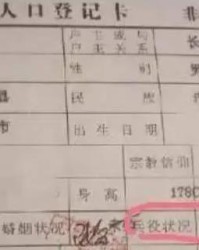 人口登记卡 非
户主或与 长
户主关系
性 别 男
县 民 族
市 出生日期
宗教信仰
身高 178C
婚姻状况 兵役状况